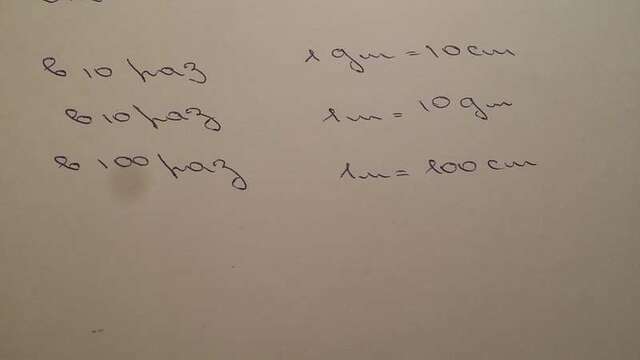 в 10 раз 1 дм = 10 см
в 10 раз 1 м = 10 дм
в 100 раз 1 м = 100 см